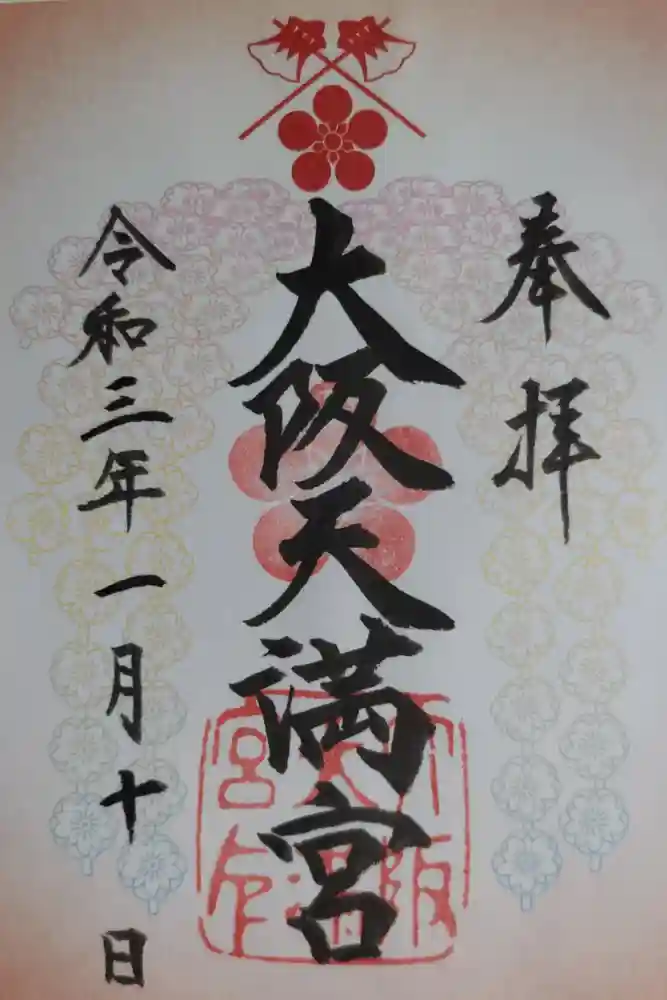 奉拝
大阪天満宮
令和三年一月十日